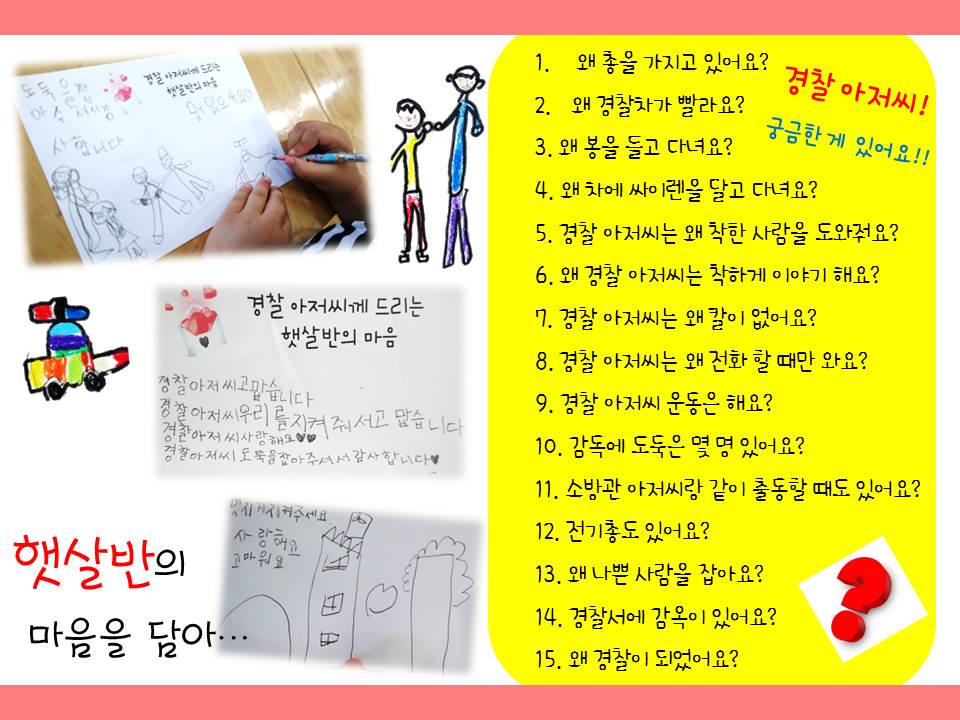 도둑을 잡
아주셔서감
사합니다
경찰 아저씨께 드리는
햇살반의 마음
경찰 아저씨께 드리는
햇살반의 마음
경찰아저씨고맙습니다
경찰아저씨우리를지켜줘서고맙습니다
경찰아저씨사랑해요♥♥
경찰아저씨도둑을잡아주셔서감사합니다♥
지켜주세요
사랑하고
고마워요
햇살반의
마음을 담아…
경찰 아저씨!
궁금한 게 있어요!!
1. 왜 총을 가지고 있어요?
2. 왜 경찰차가 빨라요?
3. 왜 봉을 들고 다녀요?
4. 왜 차에 싸이렌을 달고 다녀요?
5. 경찰 아저씨는 왜 착한 사람을 도와줘요?
6. 왜 경찰 아저씨는 착하게 이야기 해요?
7. 경찰 아저씨는 왜 칼이 없어요?
8. 경찰 아저씨는 왜 전화 할 때만 와요?
9. 경찰 아저씨 운동은 해요?
10. 감독에 도둑은 몇 명 있어요?
11. 소방관 아저씨랑 같이 출동할 때도 있어요?
12. 전기총도 있어요?
13. 왜 나쁜 사람을 잡아요?
14. 경찰서에 감옥이 있어요?
15. 왜 경찰이 되었어요?